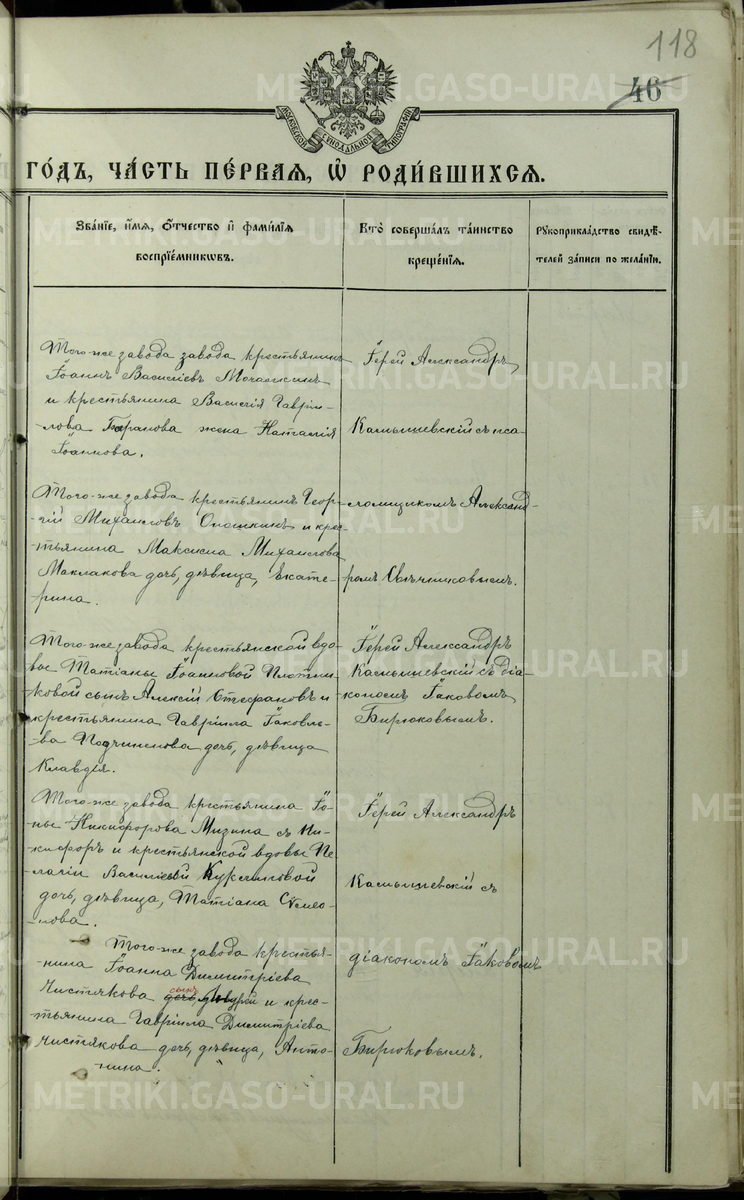 118
46
МОСКОВСКОЙ СѴНОДАЛЬНОЙ ТИПОГРАФІИ
ГО́ДЪ, ЧА́СТЬ ПЕ́РВАЯ, Ѡ҆ РОДИ́ВШИХСЯ.
ЗВА́НІЕ, И҆́МЯ, Ѻ҆́ТЧЕСТВО И҆ ФАМИ́ЛІЯ
ВОСПРІЕ́МНИКѠВЪ.
КТО̀ СОВЕРША́ЛЪ ТА́ИНСТВО
КРЕЩЕ́НІЯ.
РꙊКОПРИКЛА́ДСТВО СВИДѢ́-
ТЕЛЕЙ ЗА́ПИСИ ПО ЖЕЛА́НІЮ.
Того-же завода завода крестьянинъ
Іоаннъ Василіевъ Мочалкинъ
и крестьянина Василія Гаврі-
лова Баранова жена Наталія
Іоаннова.
Іерей Александръ
Камышевскій съ пса-
Того-же завода крестьянинъ Геор-
гій Михаиловъ Опошкинъ и крес-
тьянина Максима Михаилова
Маклакова дочь, дѣвица, Екате-
рина.
ломщикомъ Александ-
ромъ Свѣчниковымъ.
Того-же завода крестьянской вдо-
вы Татіаны Іоанновой Плотни-
ковой сынъ Алексій Стефановъ и
крестьянина Гавріила Іаковле-
ва Подчиненова дочь, дѣвица
Клавдія.
Іерей Александръ
Камышевскій съ діа-
кономъ Іаковомъ
Бирюковымъ.
Того-же завода крестьянина Іо-
ны Никифорова Мизина с. Ни-
кифоръ и крестьянской вдовы Пе-
лагіи Василіевой Куклиновой
дочь, дѣвица, Татіана Сѵмео-
нова.
Іерей Александръ
Камышевскій съ
Того-же завода крестья-
нина Іоанна Димитріева
Чистякова сынъ и крес-
тьянина Гавріила Димитріева
Чистякова дочь, дѣвица, Анто-
нина.
діакономъ Іаковомъ
Бирюковымъ.
METRIKI.GASO-URAL.RU